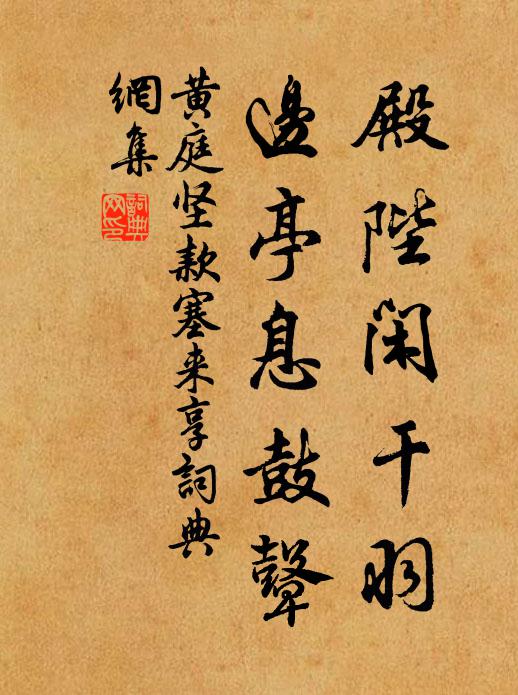 殿陛闲干羽
邊亭息鼓鼙
黄庭坚款塞来享詞典
網集
詞典
网印